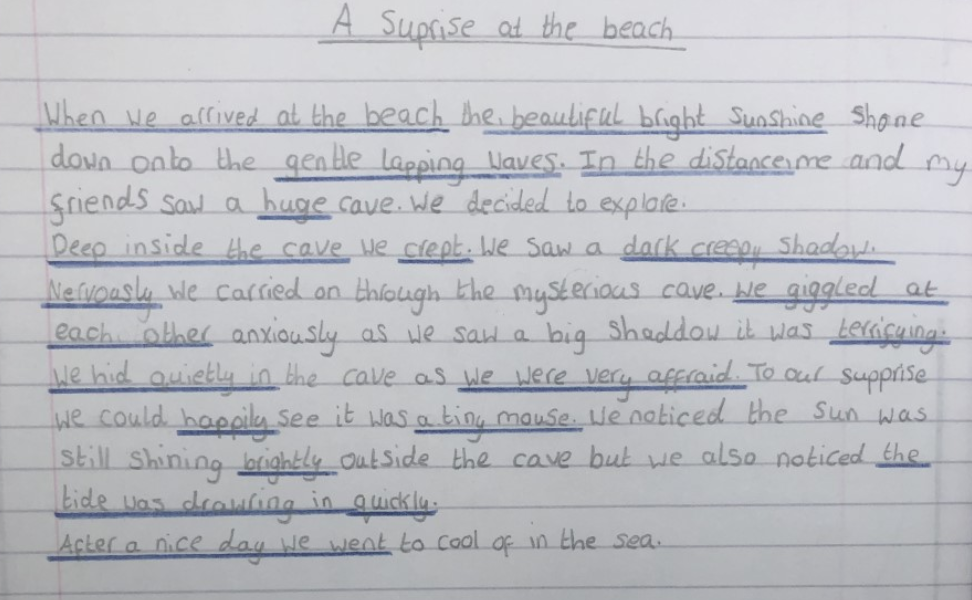 A Suprise at the beach
When we arrived at the beach the, beautiful bright Sunshine Shone
down onto the gentle lapping waves. In the distance, me and my
friends saw a huge cave. We decided to explore.
Deep inside the cave we crept. We saw a dark creepy shadow.
Nervously we carried on through the mysterious cave. We giggled at
each other anxiously as we saw a big shaddow it was terrifying.
We hid quietly in the cave as we were very affraid. To our supprise
we could happily see it was a tiny mouse. We noticed the sun was
still shining brightly outside the cave but we also noticed the
tide was drawring in quickly.
After a nice day we went to cool of in the sea.